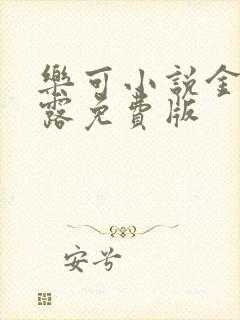 樂可小說金
露免費版
安兮